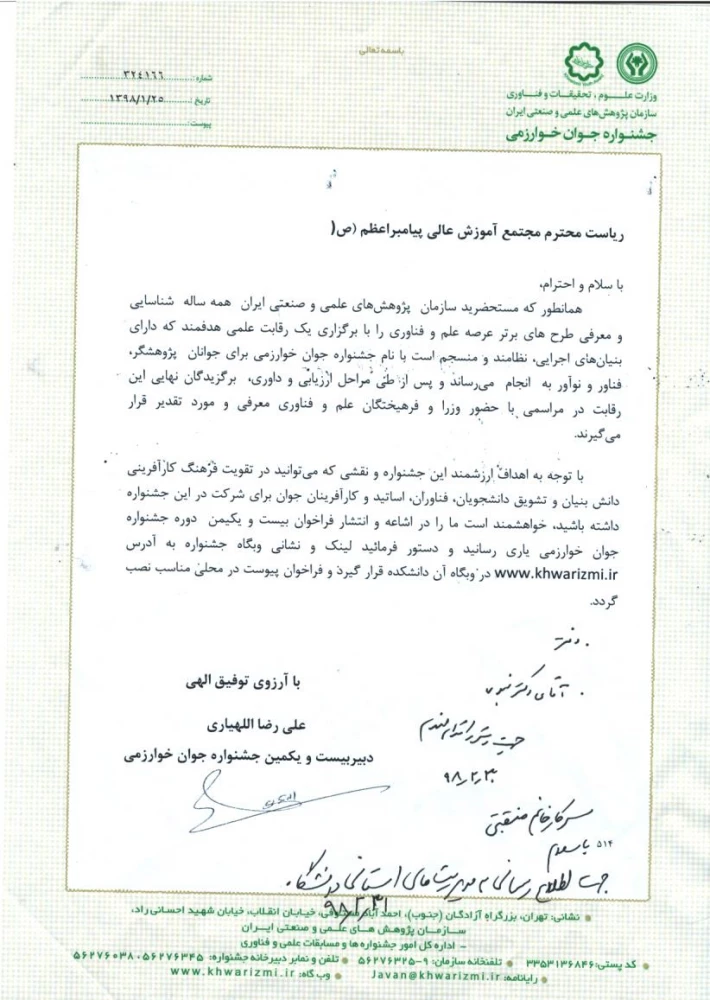 باسمه‌تعالی
وزارت علــوم، تحقیقـات و فنـاوری
سازمان پژوهش‌های علمی و صنعتی ایران
جشنـواره جـوان خـوارزمی
شماره: ۳۲۴۱۶۶
تاریخ ۱۳۹۸/۱/۲۵
پیوست:
ریاست محترم مجتمع آموزش عالی پیامبراعظم (ص(
با سلام و احترام,
همانطور که مستحضرید سازمان پژوهش‌های علمی و صنعتی ایران همه ساله شناسایی
و معرفی طرح های برتر عرصه علم و فناوری را با برگزاری یک رقابت علمی هدفمند که دارای
بنیان‌های اجرایی، نظامند و منسجم است با نام جشنواره جوان خوارزمی برای جوانان پژوهشگر،
فناور و نوآور به انجام می‌رساند و پس از طی مراحل ارزیابی و داوری، برگزیدگان نهایی این
رقابت در مراسمی با حضور وزرا و فرهیختگان علم و فناوری معرفی و مورد تقدیر قرار
می‌گیرند.
با توجه به اهداف ارزشمند این جشنواره و نقشی که می‌توانید در تقویت فرهنگ کارآفرینی
دانش بنیان و تشویق دانشجویان، فناوران، اساتید و کارآفرینان جوان برای شرکت در این جشنواره
داشته باشید، خواهشمند است ما را در اشاعه و انتشار فراخوان بیست و یکیمن دوره جشنواره
جوان خوارزمی یاری رسانید و دستور فرمائید لینک و نشانی وبگاه جشنواره به آدرس
www.khwarizmi.ir در وبگاه آن دانشکده قرار گیرد و فراخوان پیوست در محلی مناسب نصب
گردد.
با آرزوی توفیق الهی
علی رضا اللهیاری
دبیربیست و یکمین جشنواره جوان خوارزمی
دفتر
آقای دکتر
جهت
۹۸/۲/۳۰
سرکار خانم منقبتی
با سلام
جهت اطلاع رسانی به مدیریت‌های استانی دانشگاه.
۹۸/۲/۳۱
نشانی: تهران، بزرگراه آزادگـان (جنوب)، احمد آباد مستوفی، خیـابان انقلاب، خیابان شهید احسانی راد،
سـازمـان پژوهش هـای علـمی و صنعتی ایـران
- اداره کل امور جشنواره ها و مسابقات علمی و فناوری
کد پستی: ۳۳۵۳۱۳۶۸۴۶ تلفنخانه سازمان: ۹-۵۶۲۷۶۳۲۵ تلفن و نمابر دبیرخانه جشنواره: ۵۶۲۷۶۳۴۵ ، ۵۶۲۷۶۰۳۸
رایانامه: Javan@khwarizmi.ir وب گاه: www.khwarizmi.ir